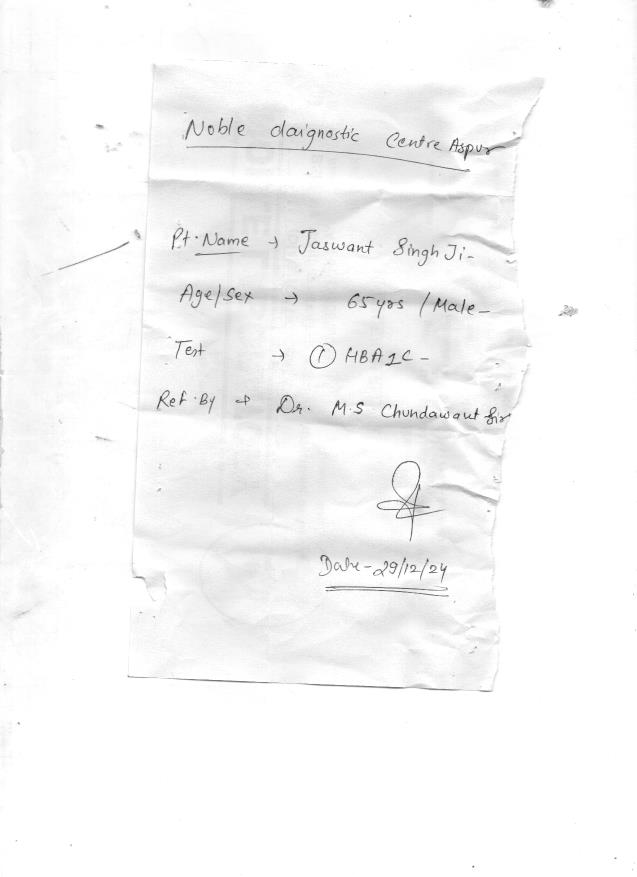 Noble daignostic Centre Aspur
Pt. Name → Jaswant Singh Ji-
Age/Sex → 65 yrs / Male-
Test → ① HBA1C-
Ref. By → Dr. M.S Chundawaut Sir
Date-29/12/24